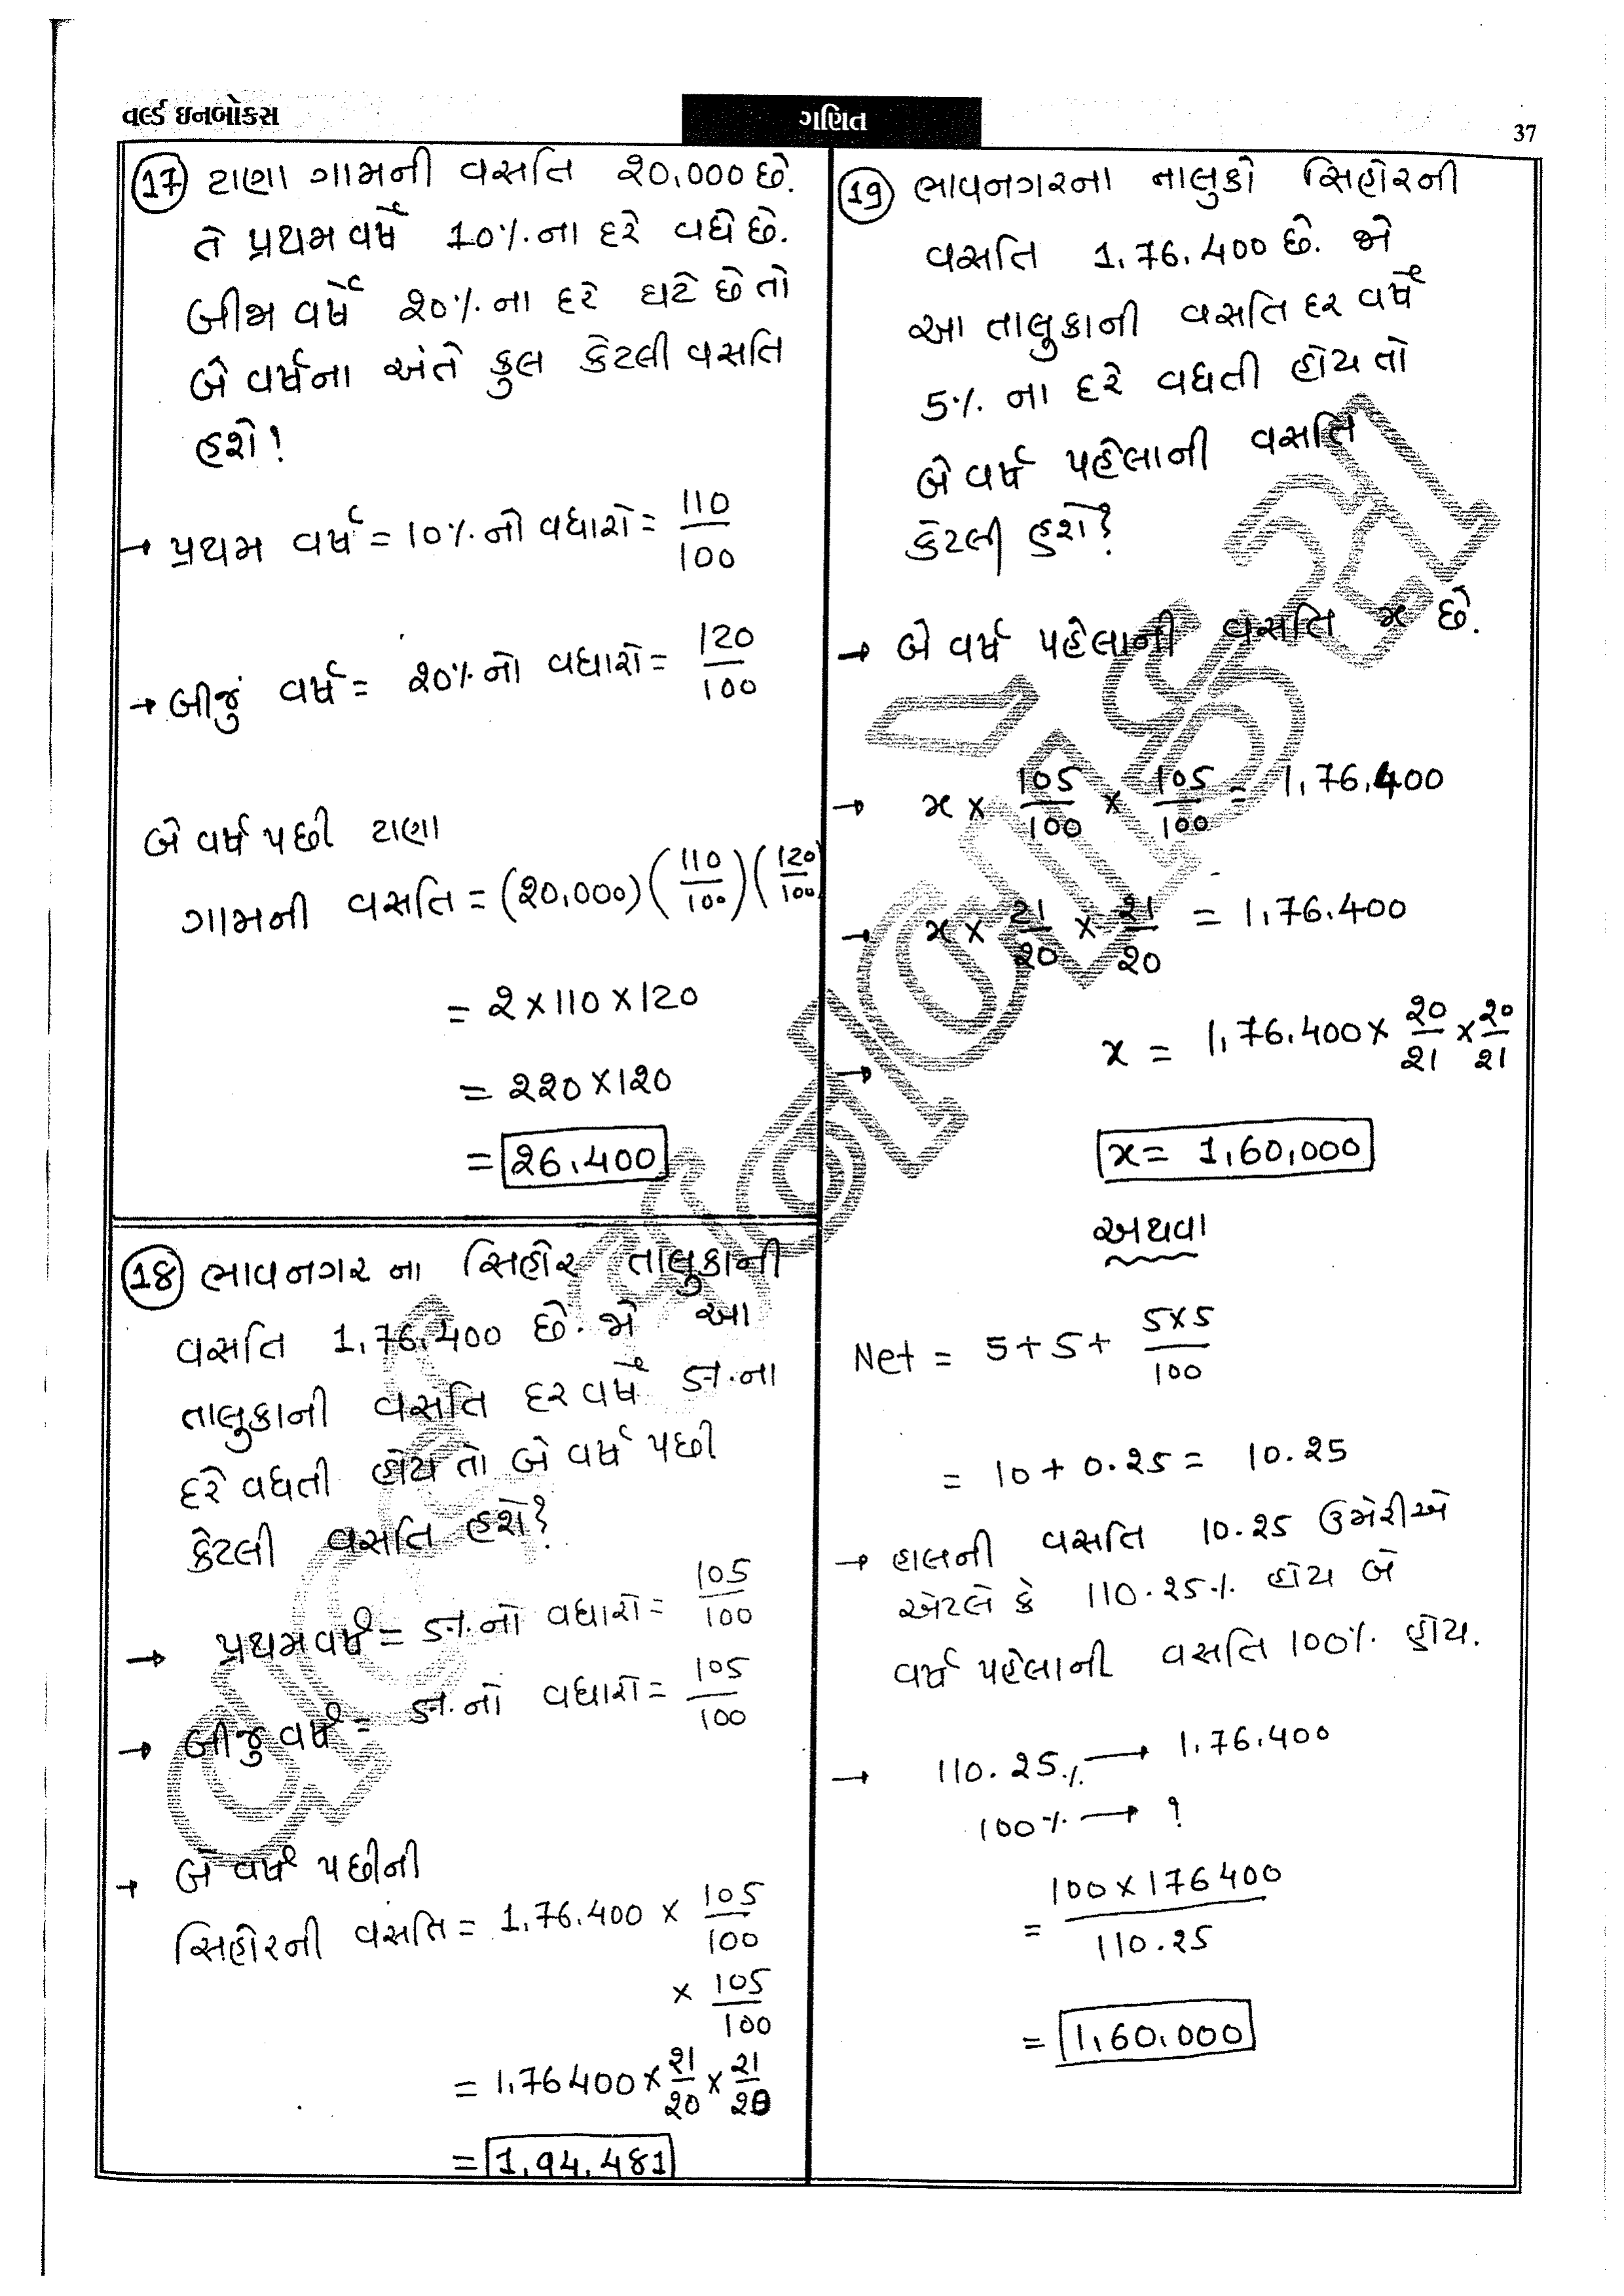 વર્લ્ડ ઇનબોક્સ
ગણિત
37
17 ટાણા ગામની વસતિ 20,000 છે.
તે પ્રથમ વર્ષે 10% ના દરે વધે છે.
બીજા વર્ષે 20% ના દરે ઘટે છે તો
બે વર્ષના અંતે કુલ કેટલી વસતિ
હશે!
→ પ્રથમ વર્ષ = 10% નો વધારો = 110/100
→ બીજું વર્ષ = 20% નો વધારો = 120/100
બે વર્ષ પછી ટાણા
ગામની વસતિ = (20,000) (110/100) (120/100)
= 2 × 110 × 120
= 220 × 120
= 26,400
18 ભાવનગર ના સિહોર તાલુકાની
વસતિ 1,76,400 છે. જો આ
તાલુકાની વસતિ દર વર્ષે 5% ના
દરે વધતી હોય તો બે વર્ષ પછી
કેટલી વસતિ હશે?
→ પ્રથમ વર્ષ = 5% નો વધારો = 105/100
→ બીજુ વર્ષ = 5% નો વધારો = 105/100
→ બે વર્ષ પછીની
સિહોરની વસતિ = 1,76,400 × 105/100
× 105/100
= 1,76400 × 21/20 × 21/20
= 1,94,481
19 ભાવનગરના તાલુકો સિહોરની
વસતિ 1,76,400 છે. જો
આ તાલુકાની વસતિ દર વર્ષે
5% ના દરે વધતી હોય તો
બે વર્ષ પહેલાની વસતિ
કેટલી હશે?
→ બે વર્ષ પહેલાની વસતિ x છે.
→ x × 105/100 × 105/100 = 1,76,400
→ x × 21/20 × 21/20 = 1,76,400
→ x = 1,76,400 × 20/21 × 20/21
x = 1,60,000
અથવા
Net = 5 + 5 + 5×5/100
= 10 + 0.25 = 10.25
→ હાલની વસતિ 10.25 ઉમેરીએ
એટલે કે 110.25% હોય બે
વર્ષ પહેલાની વસતિ 100% હોય.
→ 110.25% → 1,76,400
100% → ?
= 100 × 176400/110.25
= 1,60,000